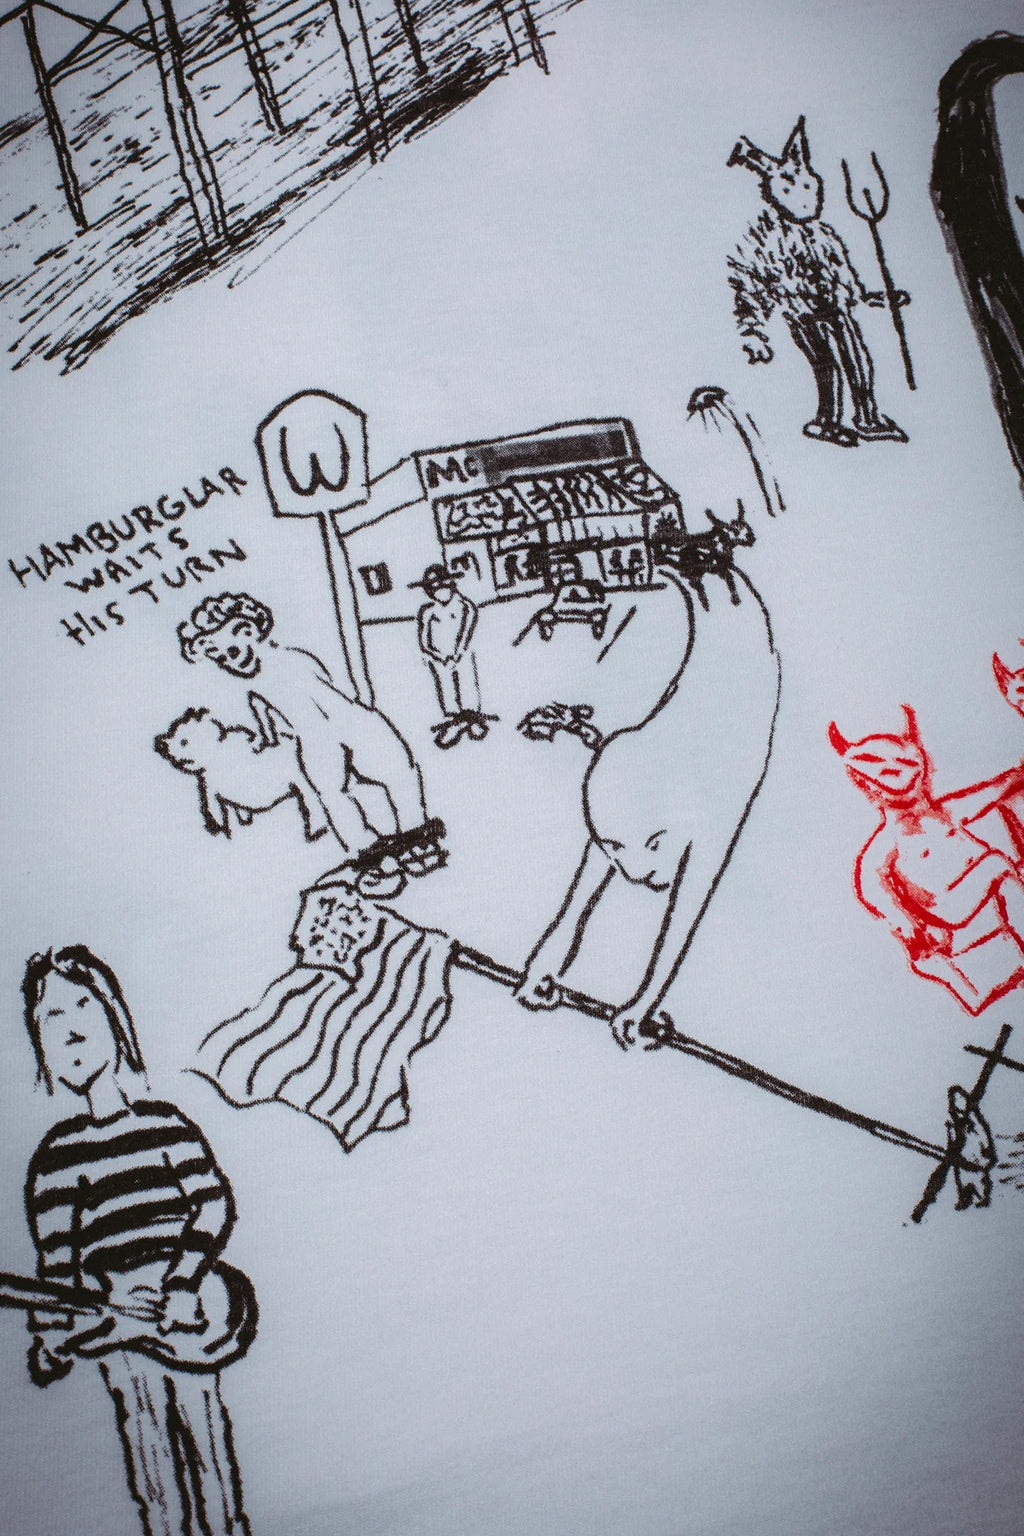 W
Mc
HAMBURGLAR
WAITS
HIS TURN